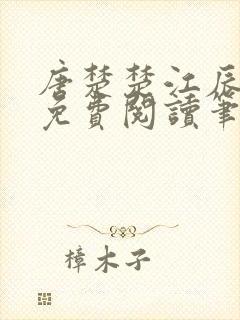 唐楚楚江辰
免費閱讀筆
樟木子